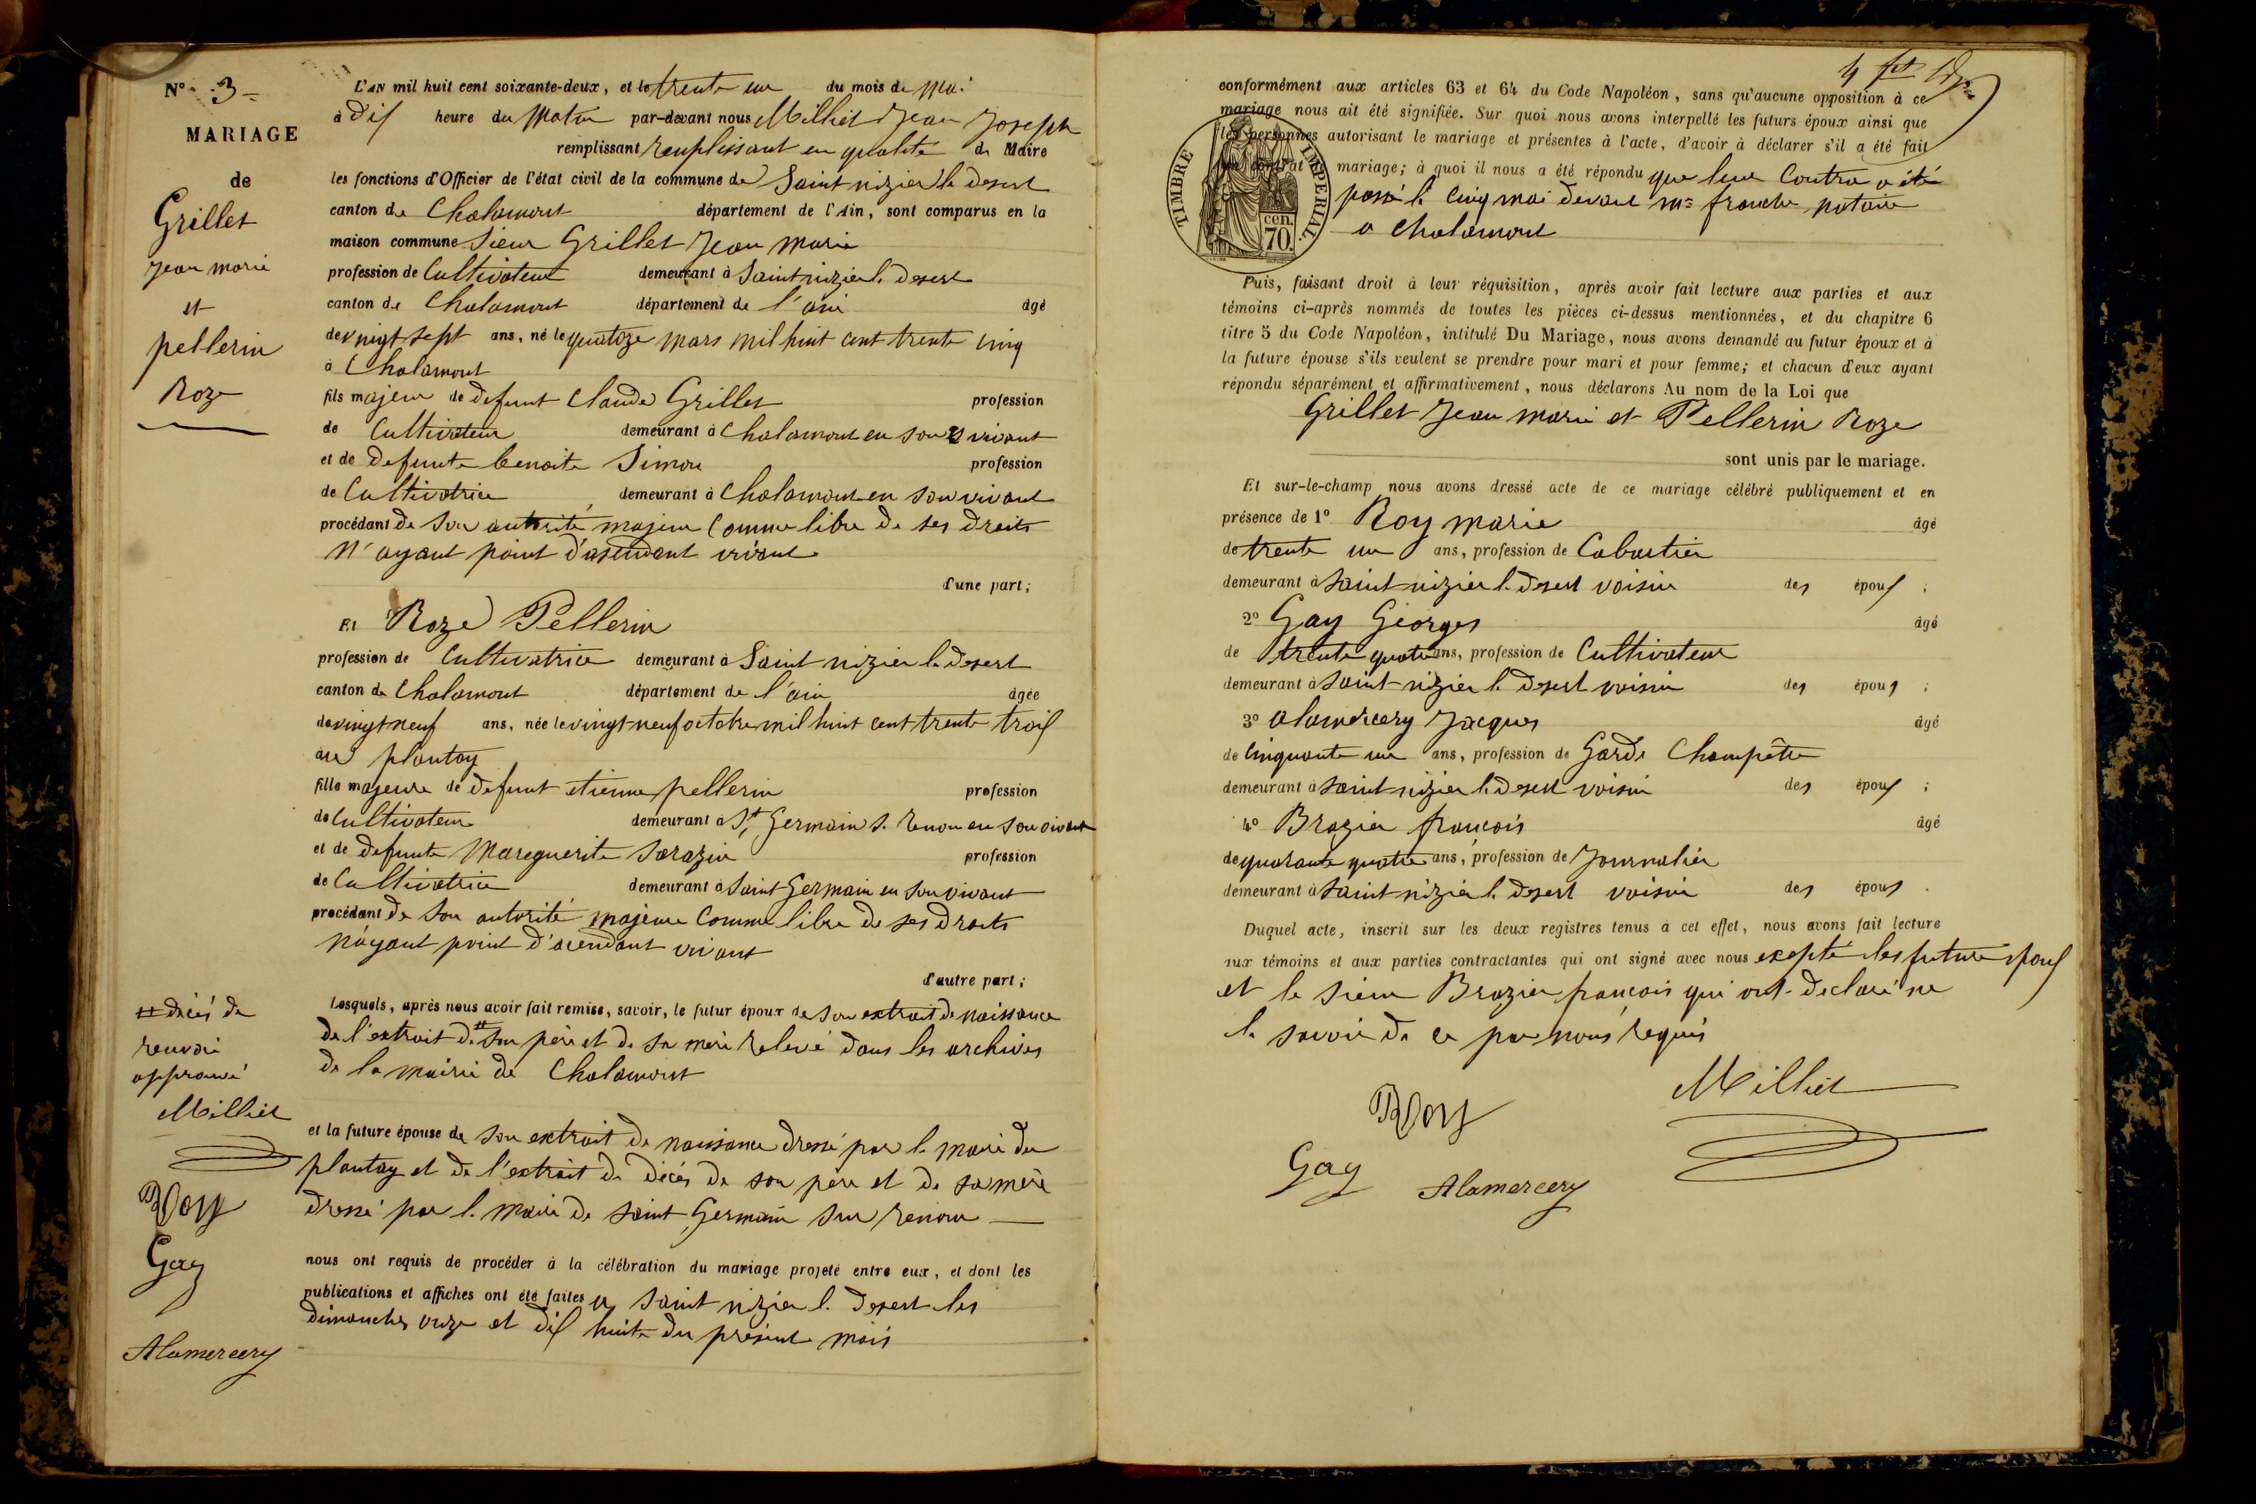 N° 3
MARIAGE
de
Grillet
Jean marie
et
pellerin
Roze
L'AN mil huit cent soixante-deux, et le trente un du mois de Mai
à dix heure du Matin par-devant nous Milliet Jean Joseph
remplissant remplissant en qualité de Maire
les fonctions d'Officier de l'état civil de la commune de Saint nizier le desert
canton de Chalamont département de l'Ain, sont comparus en la
maison commune Sieur Grillet Jean marie
profession de Cultivateur demeurant à Saint nizier le desert
canton de Chalamont département de l'ain âgé
de vingt sept ans, né le quatoze mars mil huit cent trente cinq
à Chalamont
fils majeur de defunt Claude Grillet profession
de Cultivateur demeurant à Chalamont en son vivant
et de defunte benoite Simon profession
de Cultivatrice demeurant à Chalamont en son vivant
procédant de son autorité majeur Comme libre de ses droits
N'ayant point d'asendant vivant
d'une part;
Et Roze Pellerin
profession de Cultivatrice demeurant à Saint nizier le desert
canton de Chalamont département de l'ain âgée
de vingt neuf ans, née le vingt neuf octobre mil huit cent trente trois
au plantay
fille majeure de defunt etienne pellerin profession
de Cultivateur demeurant à St Germain s. renon en son vivant
et de defunte Mareguerite Sarazin profession
de Cultivatrice demeurant à Saint Germain en son vivant
procédant de son autorité majeure Comme libre de ses droits
n'ayant point d'acendant vivant
d'autre part;
Lesquels, après nous avoir fait remise, savoir, le futur époux de son extrait de naissance
de l'extrait de # son père et de sa mère relevé dans les archives
de la mairie de Chalamont
# décés de
renvoi
approuvé
Milliet
Roy
Gay
Alamercery
et la future épouse de son extrait de naissance dressé par le maire du
plantay et de l'extrait de décés de son père et de sa mère
dressé par le maire de saint Germain sur renon
nous ont requis de procéder à la célébration du mariage projeté entre eux, et dont les
publications et affiches ont été faites a Saint nizier le desert les
dimanches onze et dix huite du présent mois
conformément aux articles 63 et 64 du Code Napoléon, sans qu'aucune opposition à ce
mariage nous ait été signifiée. Sur quoi nous avons interpellé les futurs époux ainsi que
les personnes autorisant le mariage et présentes à l'acte, d'avoir à déclarer s'il a été fait
contrat mariage; à quoi il nous a été répondu que leur Contra a été
passé le cinq mai devant me franche notaire
a Chalamont
TIMBRE IMPERIAL
70 cen.
Puis, faisant droit à leur réquisition, après avoir fait lecture aux parties et aux
témoins ci-après nommés de toutes les pièces ci-dessus mentionnées, et du chapitre 6
titre 5 du Code Napoléon, intitulé Du Mariage, nous avons demandé au futur époux et à
la future épouse s'ils veulent se prendre pour mari et pour femme; et chacun d'eux ayant
répondu séparément et affirmativement, nous déclarons Au nom de la Loi que
Grillet Jean marie et Pellerin Roze
sont unis par le mariage.
Et sur-le-champ nous avons dressé acte de ce mariage célébré publiquement et en
présence de 1° Roy marie âgé
de trente un ans, profession de Cabartier
demeurant à Saint nizier le desert voisin des époux ;
2° Gay Georges âgé
de trente quatre ans, profession de Cultivateur
demeurant à saint nizier le desert voisin des époux ;
3° alamercery Jacques âgé
de cinquante un ans, profession de Garde Champêtre
demeurant à saint nizier le desert voisin des époux ;
4° Brazier francois âgé
de quarante quatre ans, profession de Journalier
demeurant à saint nizier le desert voisin des époux .
Duquel acte, inscrit sur les deux registres tenus à cet effet, nous avons fait lecture
aux témoins et aux parties contractantes qui ont signé avec nous exepté les future epoux
et le sieur Brazier françois qui ont declaré ne
le savoir de ce par nous requis
Roy
Milliet
Gay
Alamercery